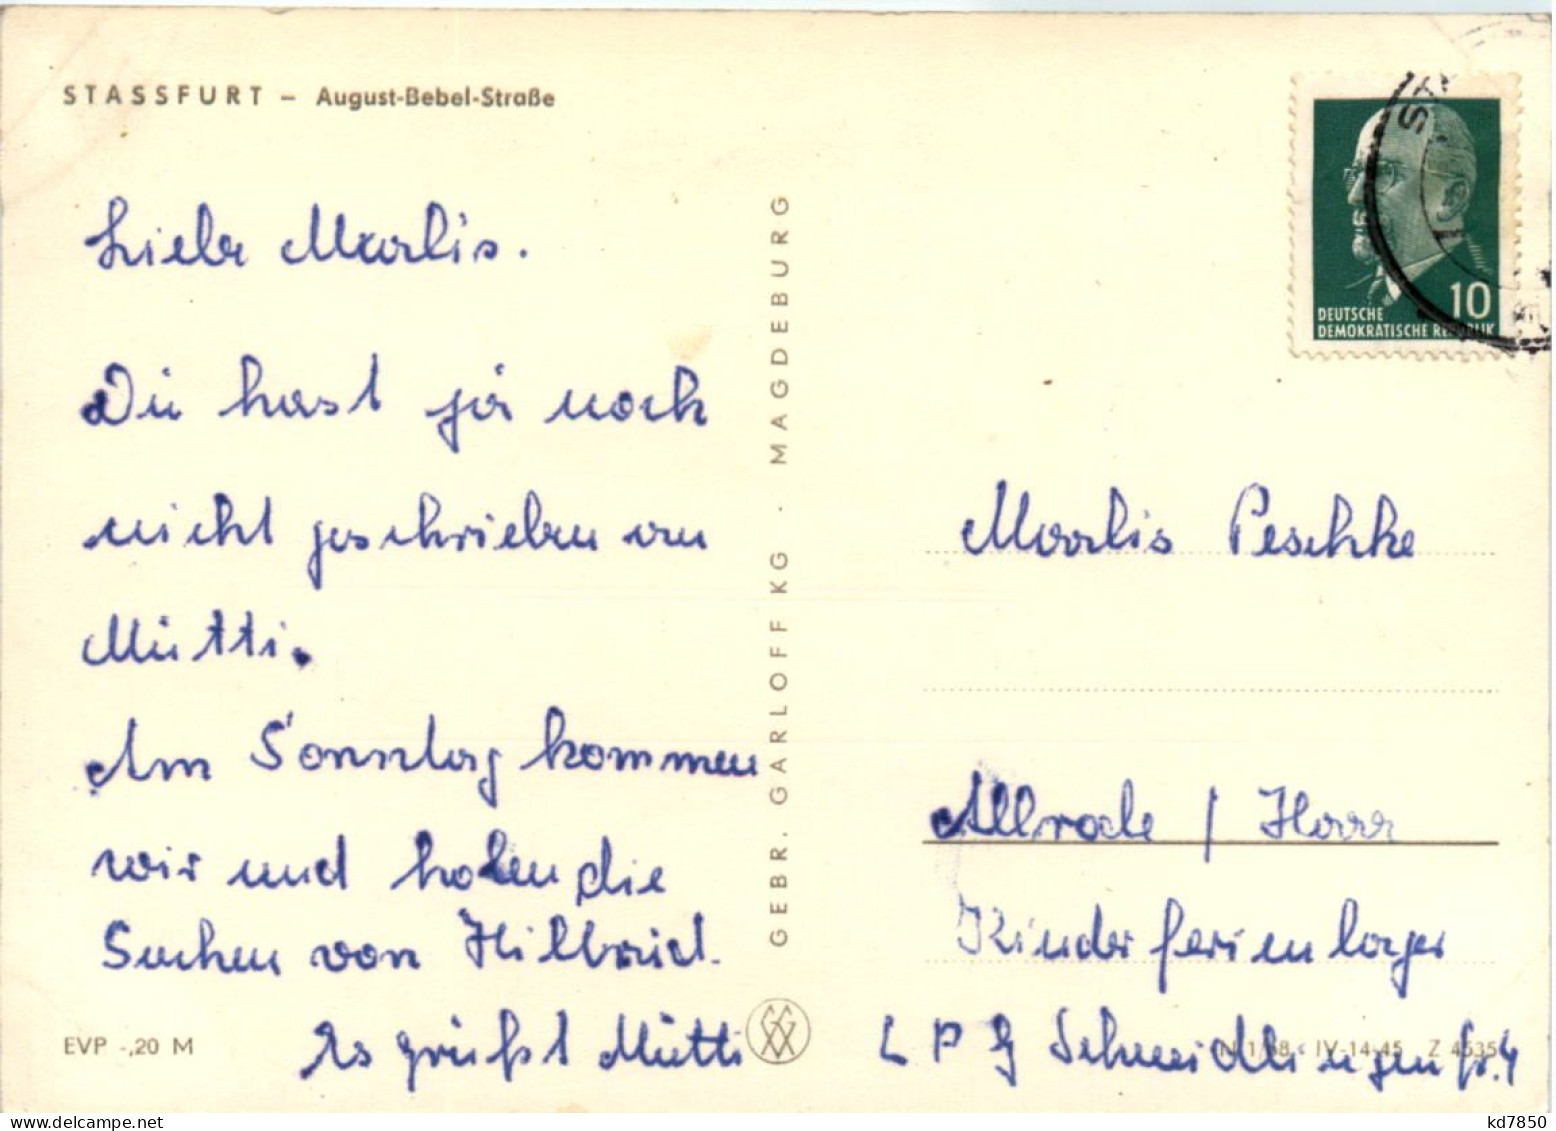 STASSFURT – August-Bebel-Straße
Liebe Marlis.
Du hast ja noch
nicht geschrieben an
Mutti.
Am Sonntag kommen
wir und holen die
Sachen von Hilbrid.
Es grüßt Mutti
EVP -,20 M
GEBR. GARLOFF KG · MAGDEBURG
10
DEUTSCHE
DEMOKRATISCHE REPUBLIK
Marlis Peschke
Allrode / Harz
Kinderferienlager
LPG Schneidlingen
IV-14-45 Z 4535
kd7850